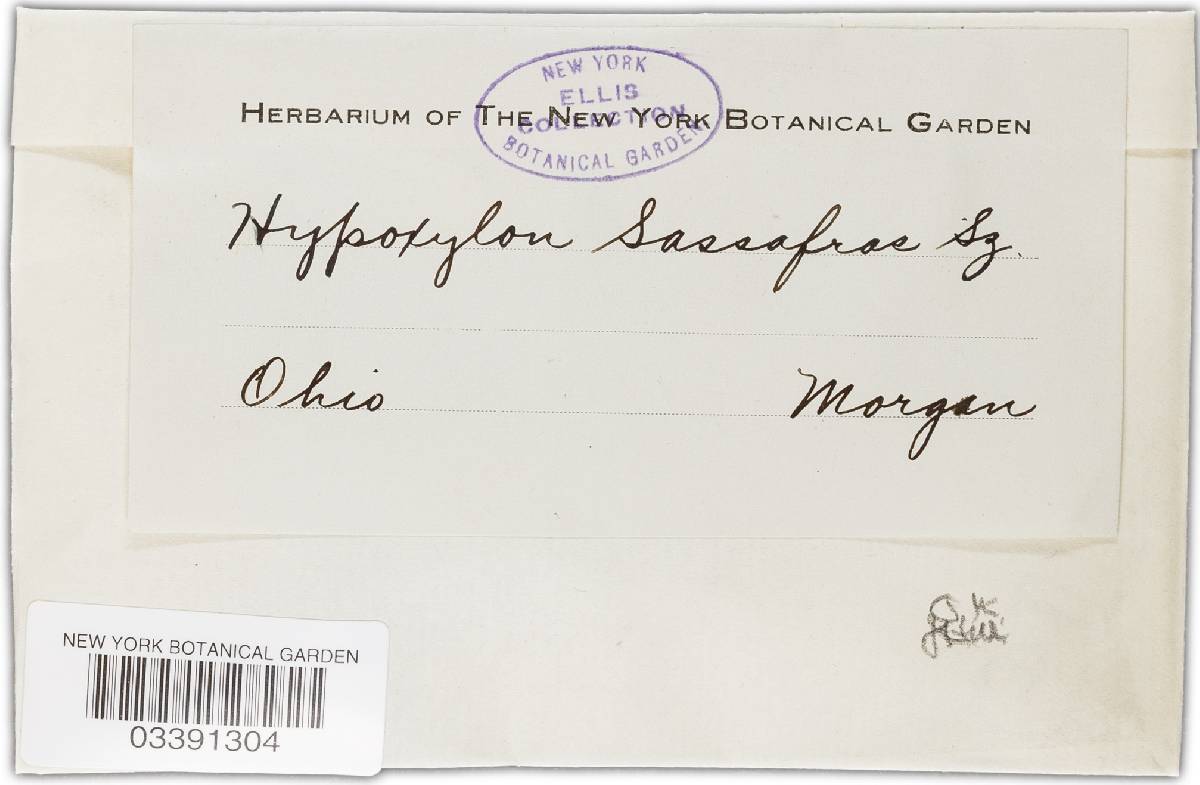 NEW YORK
ELLIS
COLLECTION
BOTANICAL GARDEN
HERBARIUM OF THE NEW YORK BOTANICAL GARDEN
Hypoxylon Sassafras Sz.
Ohio Morgan
NEW YORK BOTANICAL GARDEN
03391304